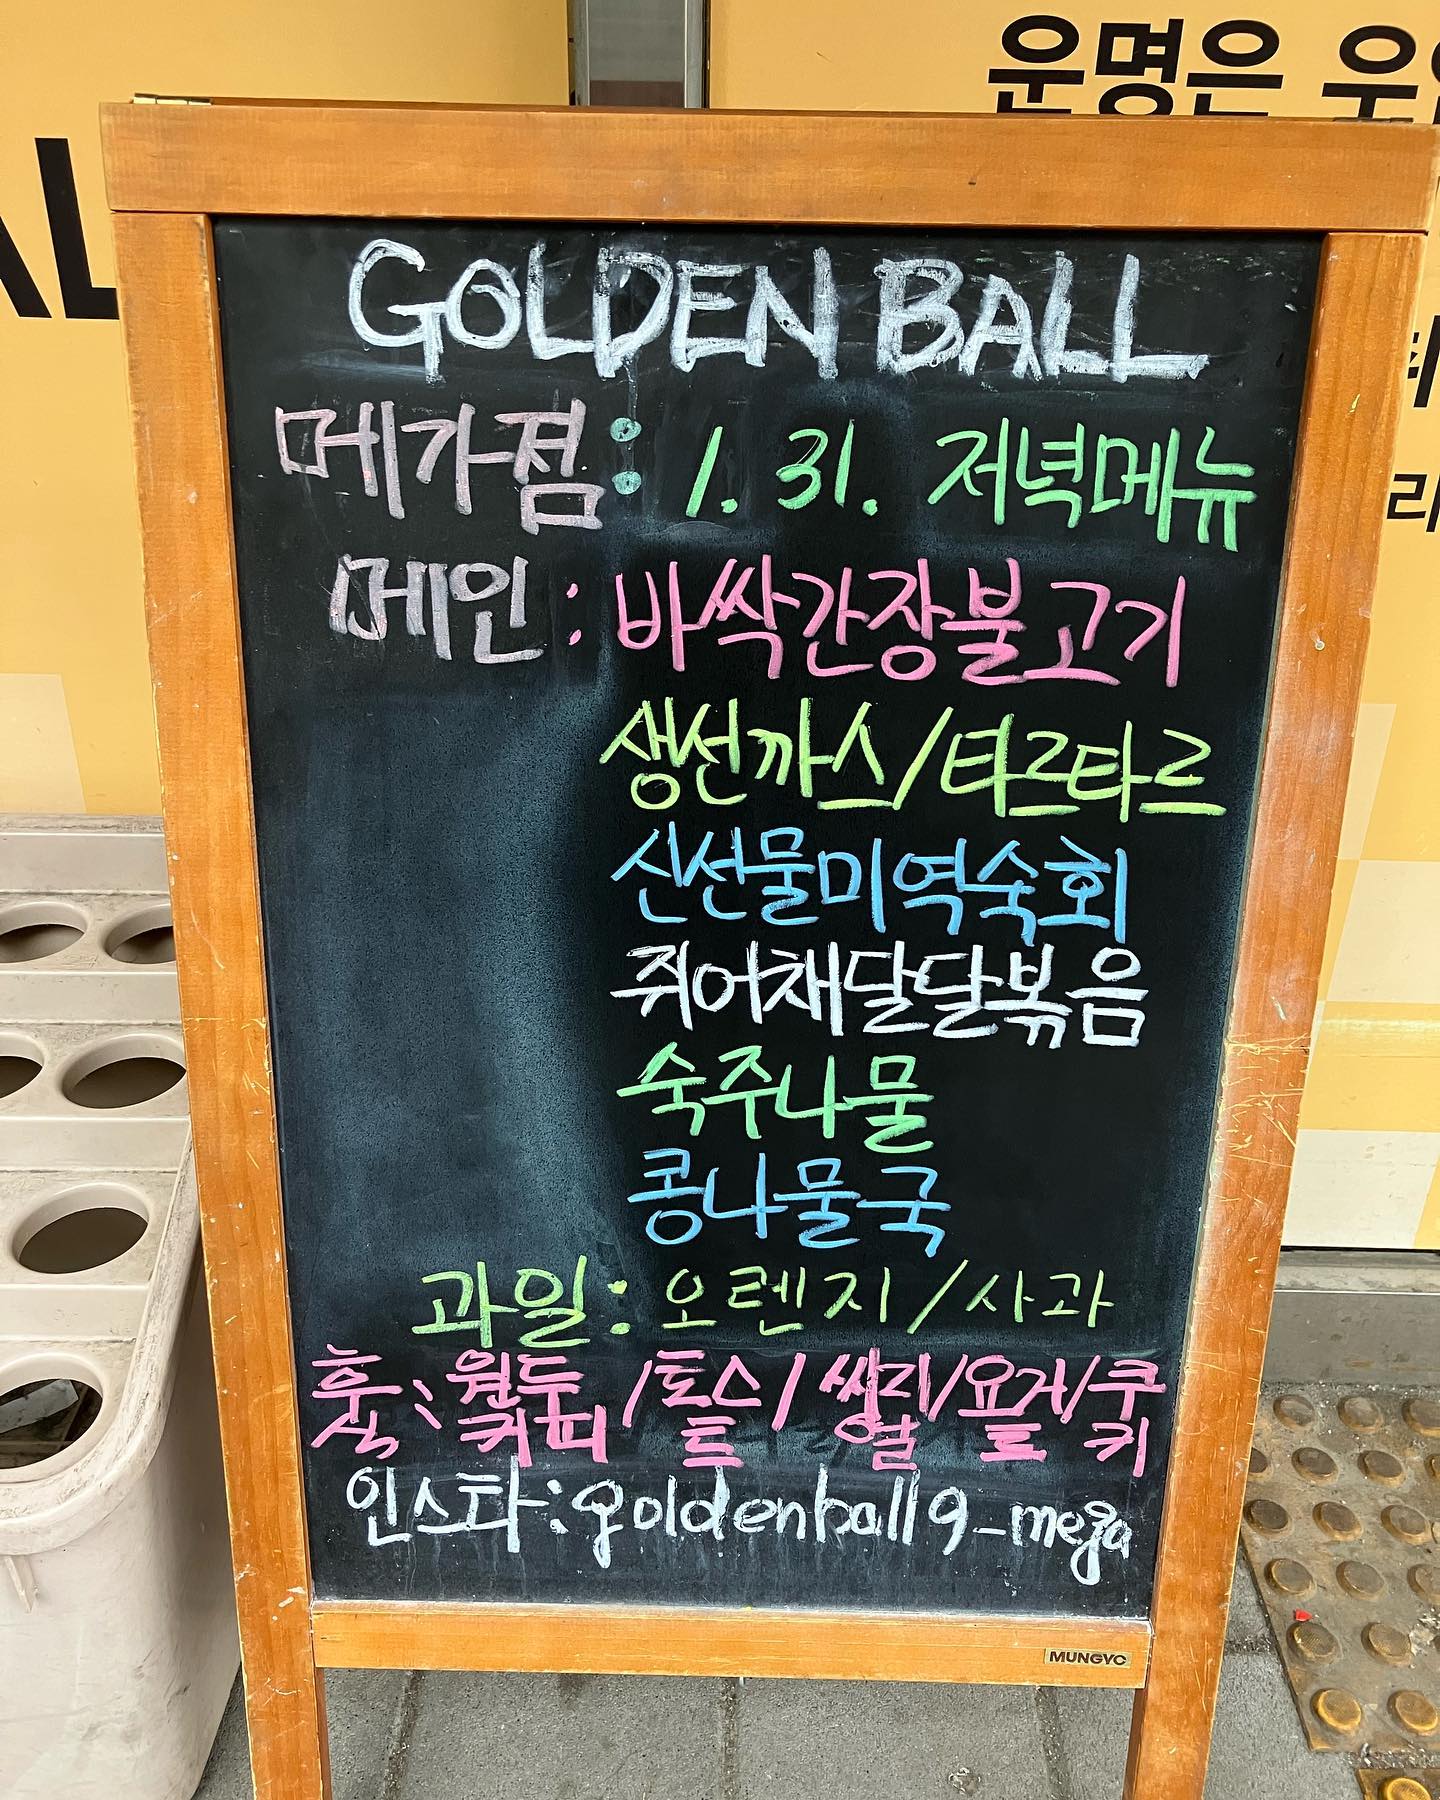 운명은 우
AL
GOLDEN BALL
메가점: 1. 31. 저녁메뉴
메인: 바싹간장불고기
생선까스/타르타르
신선물미역숙회
쥐어채달달볶음
숙주나물
콩나물국
과일: 오렌지/사과
후식: 원두커피/토스트/쌍화/요거트/쿠키
인스타: goldenball9_mega
MUNGYO